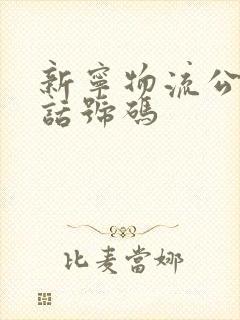 新寧物流公
話號碼
比麦當娜